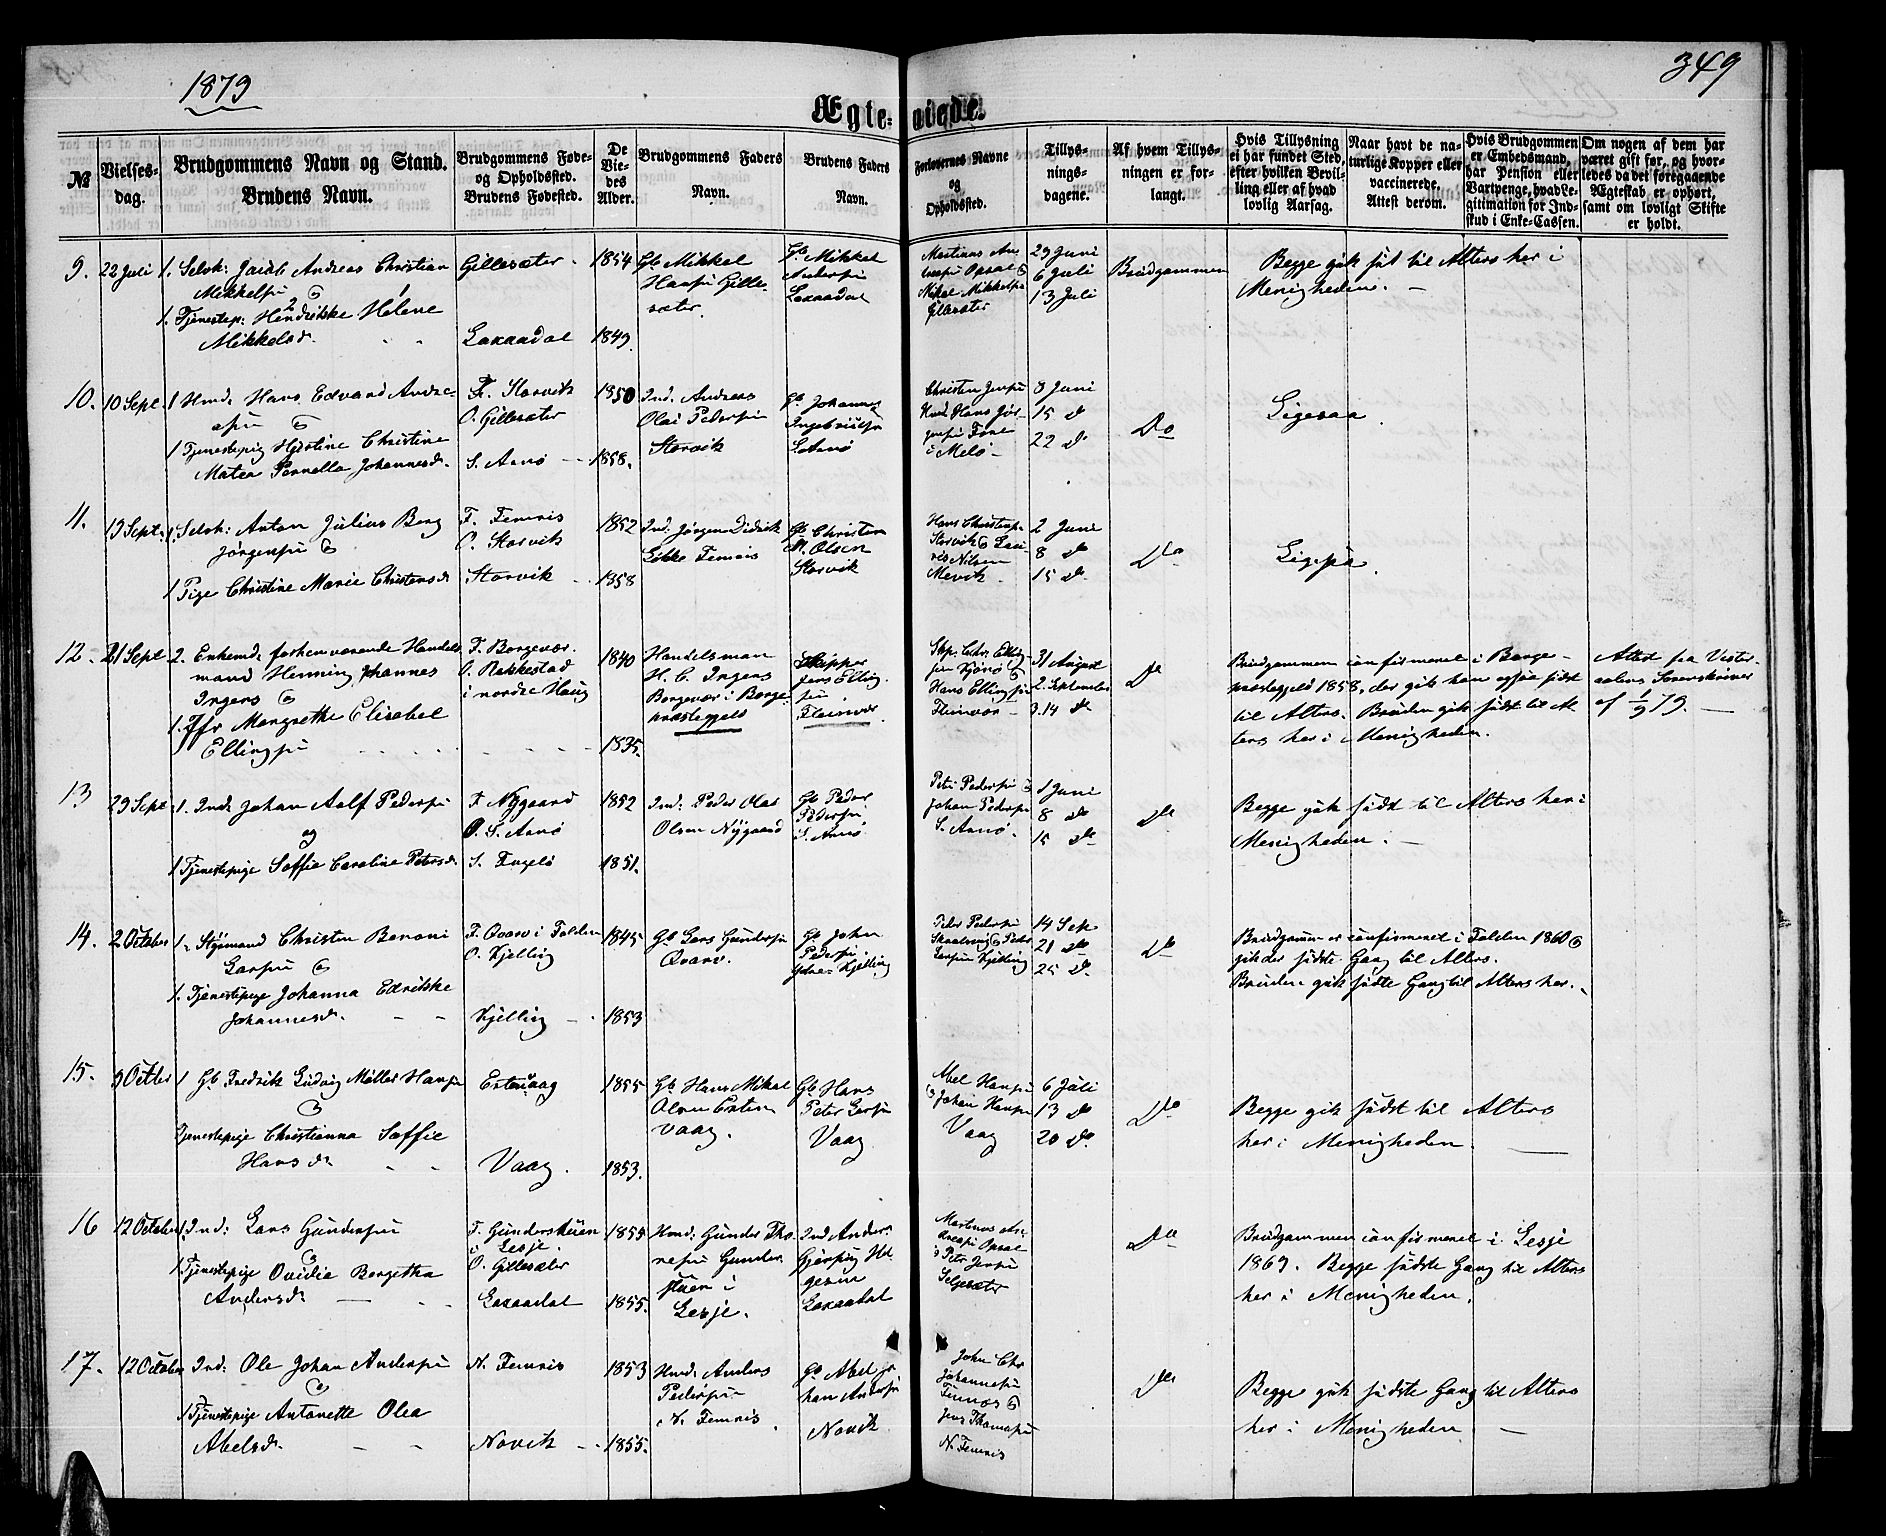 1879
349
Ægte-viede.
№
Vielses-
dag.
Brudgommens Navn og Stand.
Brudens Navn.
Brudgommens Føde-
og Opholdssted.
Brudens Fødested.
De
Vie-
des
Alder.
Brudgommens Faders
Navn.
Brudens Faders
Navn.
Forlovernes Navne
og
Opholdssted.
Tillys-
nings-
dagene.
Af hvem Tillys-
ningen er for-
langt.
Hvis Tillysning
ei har fundet Sted,
efter hvilken Bevil-
ling eller af hvad
lovlig Aarsag.
Naar havt de na-
turlige Kopper eller
vaccinerede.
Attest derom.
Hvis Brudgommen
er Embedsmand,
har Pension eller
Vartpenge, hvad Le-
gitimation for Ind-
skud i Enke-Cassen.
Om nogen af dem har
været gift før, og hvor-
ledes da det foregaaende
Ægteskab er ophørt,
samt om lovligt Skifte
er holdt.
9.
22 Juli
1. Selvk: Jacob Andreas Christian
Mikkelsen &
1. Tjenestep: Hendrikke Helene
Mikkelsd.
Gillesæter
Laxaadal
1854
1849.
Gb Mikkel
Hansen Gille-
sæter.
Gb Mikkel
Andersen
Laxaadal
Martinus An-
dreasen Opsal &
Mikal Mikkelsen
Gillesæter
29 Juni
6 Juli
13 Juli
Brudgommen
Begge gik sidst til Alters her i
Menigheden.
10.
10 Sept.
1 Hmd. Hans Edvard Andre-
asen &
1 Tjenestepig Hjertine Christine
Matea Pernella Johannesd.
F. Storvik
O. Gillesæter
S. Arnø
1850
1858.
Ind. Andreas
Olai Pedersen
Storvik
Gb Johannes
Ingebrigtsen
S. Arnø
Christen Jensen
Hmd Hans Jør-
gensen Fore
i Melø
8 Juni
15 do
22 do
Do
Ligesaa
11.
13 Sept.
1 Selvk: Anton Julius Berg
Jørgensen &
1 Pige Christine Marie Christensd
F. Femris
O. Storvik
Storvik
1852
1858
Ind. Jørgen Didrik
Femris
Gb Christen
M. Olsen
Storvik
Hans Christensen
Storvik &
Nilsen
Mevik
2 Juni
8 do
15 do
Do
Ligesaa
12.
21 Sept
2. Enkemd. forhenværende Handels
mand Henning Johannes
Ingers &
1. Jfr Margrethe Elisabet
Ellingsen
F. Borgevær.
O. Rakkestad
i nordre Haug
1840
1835.
Handelsman
H. C. Ingers
Borgevær i Borge
præstegjeld
Skipper
Jens Elling-
sen
Fleinvær
Skp. Chr. Elling-
sen Kjønø &
Hans Ellingsen
Fleinvær
31 August
2. September
3. 14 do
Do
Brudgommen confirmeret i Borge
præstegjeld 1858, der gik han ogsaa sidst
til Alters. Bruden gik sidst til Al-
ters her i Menigheden.
Attest fra Vester-
aalens Sorenskriver
af 1/9 79.
13
29 Sept
1. Ind. Johan Aalf Pedersen
og
1 Tjenestepige Soffie Caroline Petersd.
F. Nygaard
O. S. Arnø
S. Fugelø
1852
1851.
Ind: Peder Olai
Olsen Nygaard
Gb Peder
Pedersen
S. Arnø
Petter Pedersen &
Johan Pedersen
S. Arnø.
1 Juni
8 do
15 do
Do
Begge gik sidst til Alters her i
Menigheden.
14.
2 October
1. Styrmand Christen Benoni
Larsen &
1. Tjenestepige Johanna Edrikke
Johannesd.
F. Qvarv i Folden
O. Kjelling
Kjelling
1845
1853
Gb Lars Gundersen
Qvarv.
Gb John
Pedersen
Kjelling
Peder Pedersen
& Peder
Larsen Kjelling
14 Sep.
21 do
25 do
Do
Brudgom er confirmeret i Folden 1860 &
gik der sidste Gang til Alters.
Bruden gik sidste Gang til Alters her.
15.
9 Octber
1 Gb Fredrik Ludvig Møller Hansen
&
Tjenestepige Christianna Soffie
Hansd.
Estenvaag
Vaag.
1855
1853.
Gb Hans Mikal
Olsen Esten-
vaag.
Gb Hans
Peter Larsen
Vaag.
Abel Hansen
& Johan Hansen
Vaag
6 Juli
13 do
20 do
Do
Begge gik sidst til Alters
her i Menigheden.
16
12 October
1 Ind: Lars Gundersen
&
1 Tjenestepige Ovidia Bergetha
Andersd.
F. Gunderstuen
i Lesje.
O. Gillesæter
Laxaadal
1855
1855.
Hmd: Gunder Tho-
resen Gunder-
stuen i
Lesje.
Ind Anders
Gjørtzig Hel-
gesen
Laxaadal
Martinus An-
dreasen Opsal
& Peter Jensen
Selsæter
Do
Brudgommen confirmeret i Lesje
1869. Begge sidste Gang til Alters
her i Menigheden.
17.
12 October
Ind: Ole Johan Andersen
&
1 Tjenestepige Antonette Olea
Abelsd.
N. Femris
Novik
1853
1855.
Hmd: Anders
Pedersen
N. Femris
Gb Abel Jo-
han Andersen
Novik
John Chr
Johannesen
Finnes &
Jens Thomassen
N. Femris
Do
Begge gik sidste Gang til Alters
her i Menigheden.